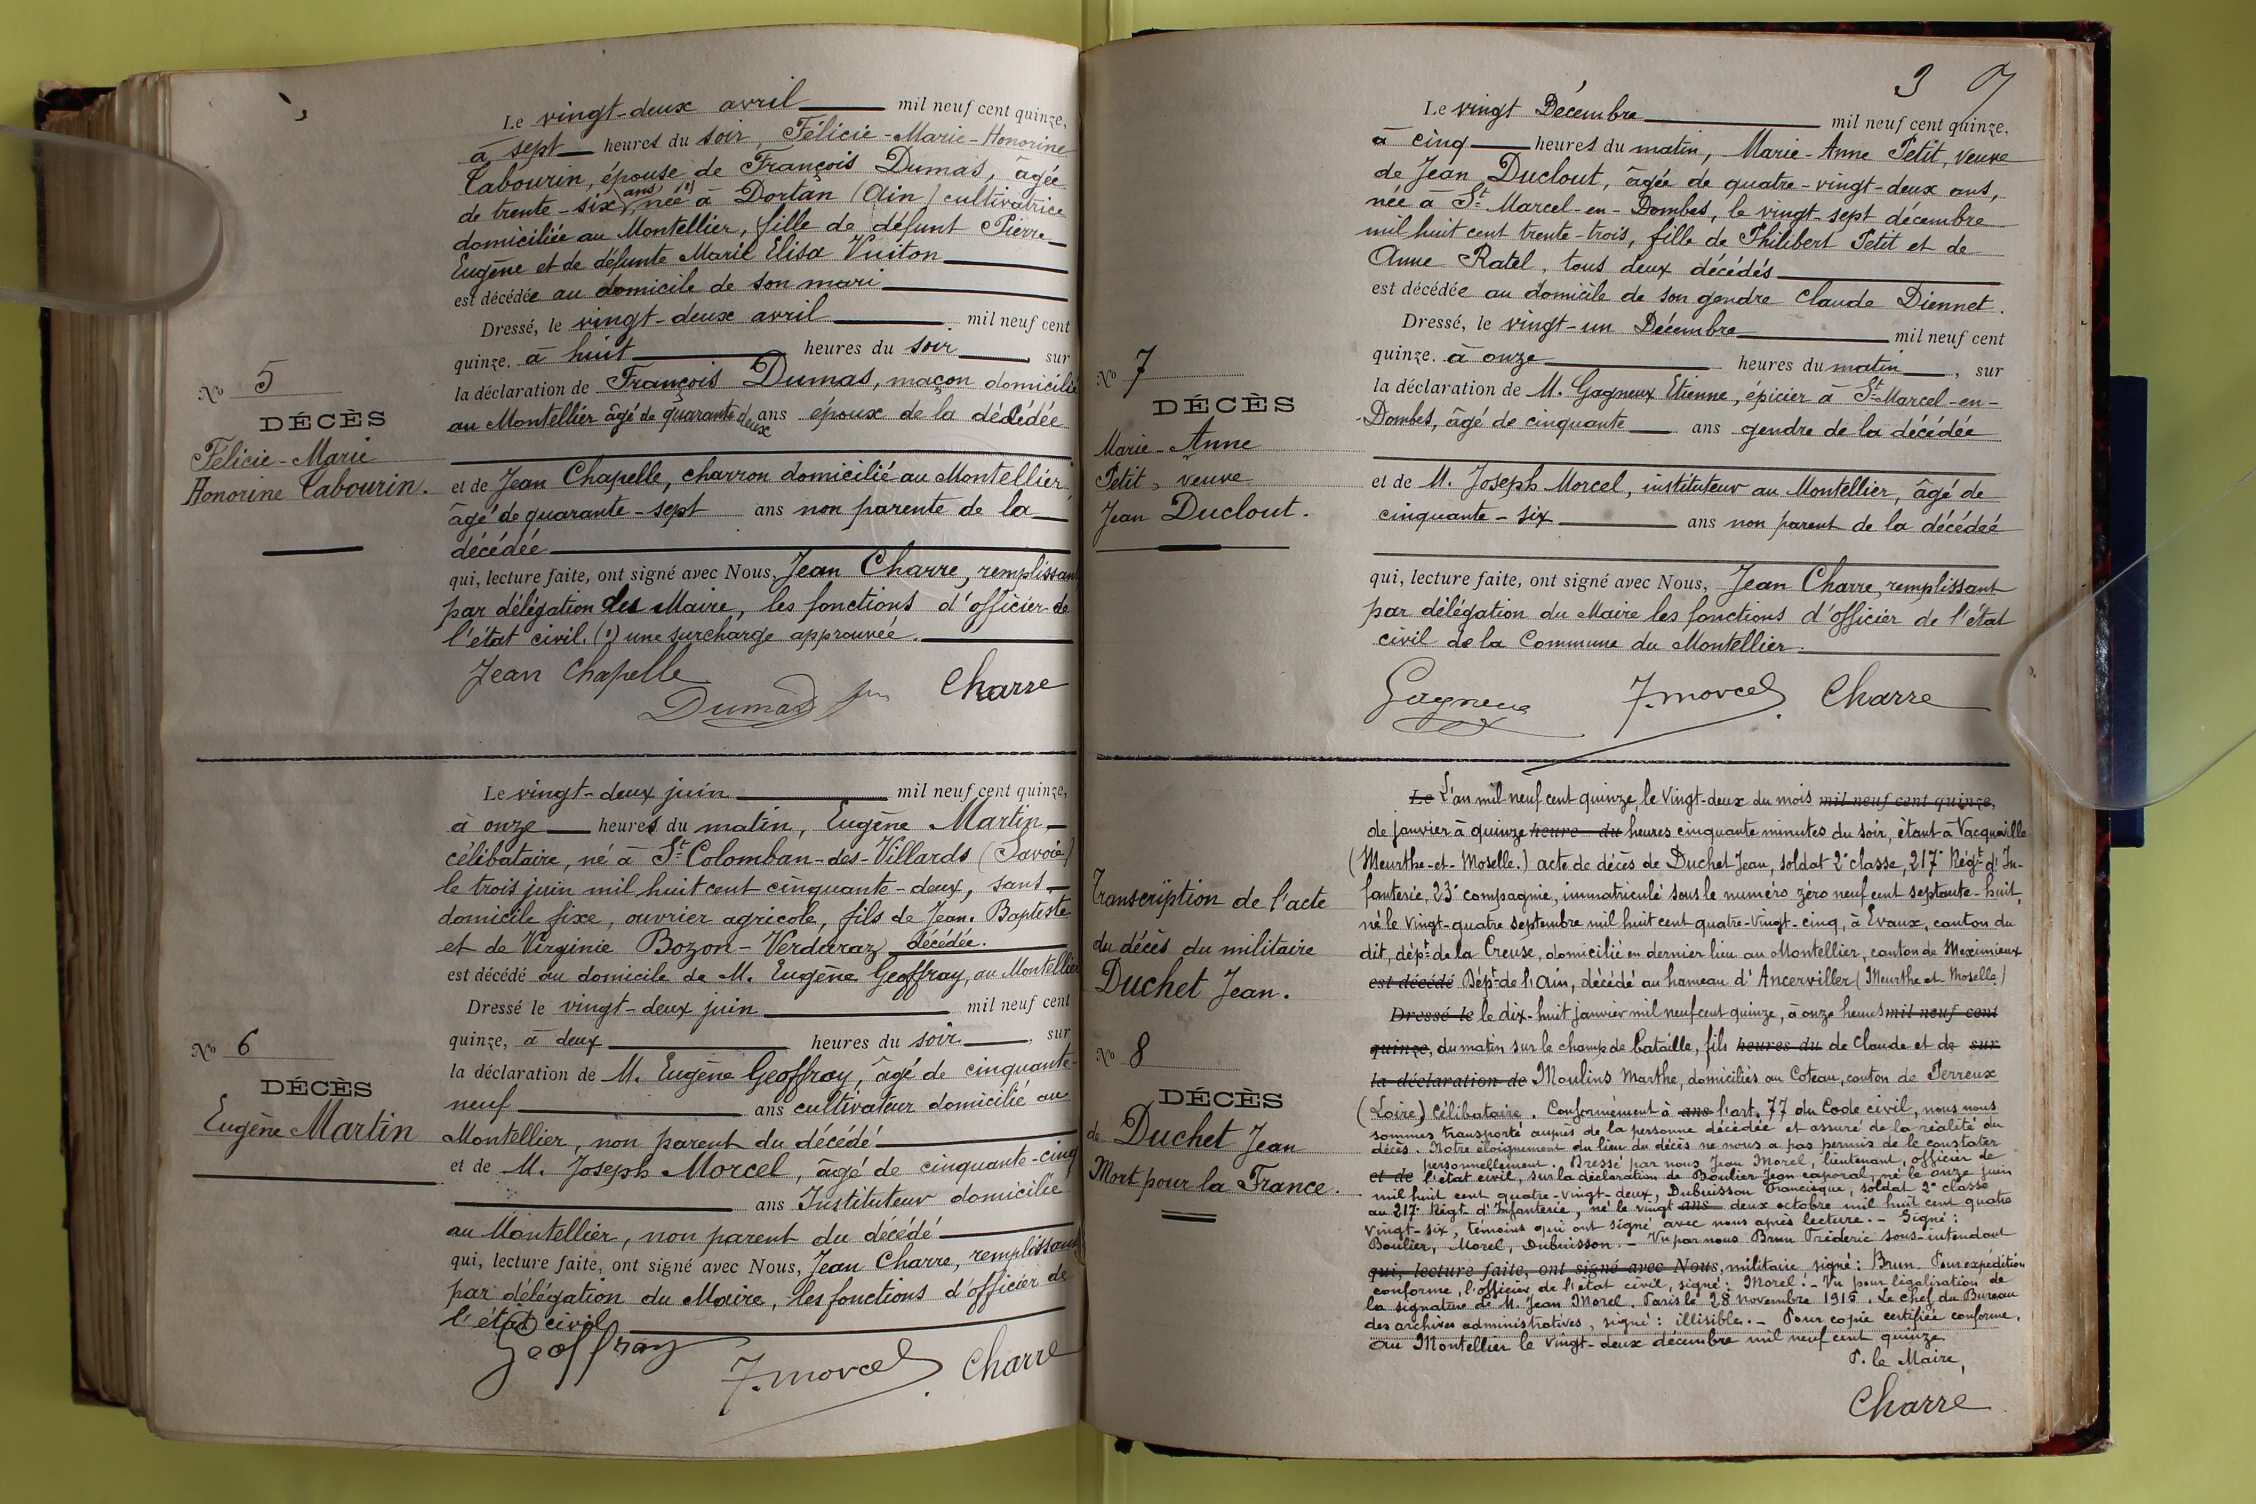 Le vingt-deux avril mil neuf cent quinze,
à sept heures du soir, Félicie-Marie-Honorine
Cabourin, épouse de François Dumas, âgée
de trente-six ans (1) née à Dortan (Ain) cultivatrice
domiciliée au Montellier, fille de défunt Pierre
Eugène et de défunte Marie Elisa Vuiton
est décédée au domicile de son mari
Dressé, le vingt-deux avril mil neuf cent
quinze. à huit heures du soir, sur
la déclaration de François Dumas, maçon domicilié
au Montellier âgé de quarante deux ans époux de la décédée
et de Jean Chapelle, charron domicilié au Montellier,
âgé de quarante-sept ans non parente de la
décédée
qui, lecture faite, ont signé avec Nous, Jean Charre, remplissant
par délégation du Maire, les fonctions d'officier de
l'état civil. (1) une surcharge approuvée.
Jean Chapelle
Dumas Charre
No 5
DÉCÈS
Félicie-Marie
Honorine Cabourin.
Le vingt-deux juin mil neuf cent quinze,
à onze heures du matin, Eugène Martin
célibataire, né à St Colomban-des-Villards (Savoie)
le trois juin mil huit cent cinquante-deux, sans
domicile fixe, ouvrier agricole, fils de Jean-Baptiste
et de Virginie Bozon-Verduraz décédée.
est décédé au domicile de M. Eugène Geoffray, au Montellier
Dressé le vingt-deux juin mil neuf cent
quinze, à deux heures du soir, sur
la déclaration de M. Eugène Geoffray, âgé de cinquante-
neuf ans cultivateur domicilié au
Montellier, non parent du décédé
et de M. Joseph Morcel, âgé de cinquante-cinq
ans Instituteur domicilié
au Montellier, non parent du décédé
qui, lecture faite, ont signé avec Nous, Jean Charre, remplissant
par délégation du Maire, les fonctions d'officier de
l'état civil
Geoffray
J. Morcel Charre
No 6
DÉCÈS
Eugène Martin
3 7
Le vingt Décembre mil neuf cent quinze,
à cinq heures du matin, Marie-Anne Petit, veuve
de Jean Duclout, âgée de quatre-vingt-deux ans,
née à St Marcel-en-Dombes, le vingt-sept décembre
mil huit cent trente-trois, fille de Philibert Petit et de
Anne Ratel, tous deux décédés
est décédée au domicile de son gendre Claude Diennet.
Dressé, le vingt-un Décembre mil neuf cent
quinze. à onze heures du matin, sur
la déclaration de M. Gagneux Etienne, épicier à St Marcel-en-
Dombes, âgé de cinquante ans gendre de la décédée
et de M. Joseph Morcel, instituteur au Montellier, âgé de
cinquante-six ans non parent de la décédée
qui, lecture faite, ont signé avec Nous, Jean Charre, remplissant
par délégation du Maire les fonctions d'officier de l'état
civil de la Commune du Montellier.
Gagneux J. Morcel Charre
No 7
DÉCÈS
Marie-Anne
Petit, veuve
Jean Duclout.
Le L'an mil neuf cent quinze, le Vingt-deux du mois mil neuf cent quinze,
de janvier à quinze heure du heures cinquante minutes du soir, étant à Vacqueville
(Meurthe-et-Moselle.) acte de décès de Duchet Jean, soldat 2e classe, 217e Régt d'In-
fanterie, 23e compagnie, immatriculé sous le numéro zéro neuf cent septante-huit,
né le vingt-quatre septembre mil huit cent quatre-vingt-cinq, à Evaux, canton du
dit, dépt de la Creuse, domicilié en dernier lieu au Montellier, canton de Meximieux
est décédé Dépt de l'Ain, décédé au hameau d'Ancerviller (Meurthe et Moselle)
Dressé le le dix-huit janvier mil neuf cent quinze, à onze heures mil neuf cent
quinze, du matin sur le champ de bataille, fils heures du de Claude et de sur
la déclaration de Moulins Marthe, domiciliés au Coteau, canton de Perreux
(Loire) Célibataire. Conformément à ans l'art. 77 du Code civil, nous nous
sommes transporté auprès de la personne décédée et assuré de la réalité du
décès. Notre éloignement du lieu du décès ne nous a pas permis de le constater
personnellement. Dressé par nous Jean Morel, lieutenant, officier de
et de l'état civil, sur la déclaration de Boulier Jean caporal, né le onze juin
mil huit cent quatre-vingt-deux, Dubuisson Francisque, soldat 2e classe
au 217e Régt d'Infanterie, né le vingt ans deux octobre mil huit cent quatre
vingt-six, témoins qui ont signé avec nous après lecture. - Signé:
Boulier, Morel, Dubuisson. - Vu par nous Brun Fréderic sous-intendant
qui, lecture faite, ont signé avec Nous, militaire signé: Brun. Pour expédition
conforme, l'officier de l'état civil, signé: Morel. - Vu pour légalisation de
la signature de M. Jean Morel. Paris le 28 novembre 1915. Le chef du Bureau
des archives administratives, signé: illisible. - Pour copie certifiée conforme.
au Montellier le vingt-deux décembre mil neuf cent quinze
P. le Maire,
Charre
Transcription de l'acte
du décès du militaire
Duchet Jean.
No 8
DÉCÈS
de Duchet Jean
Mort pour la France.